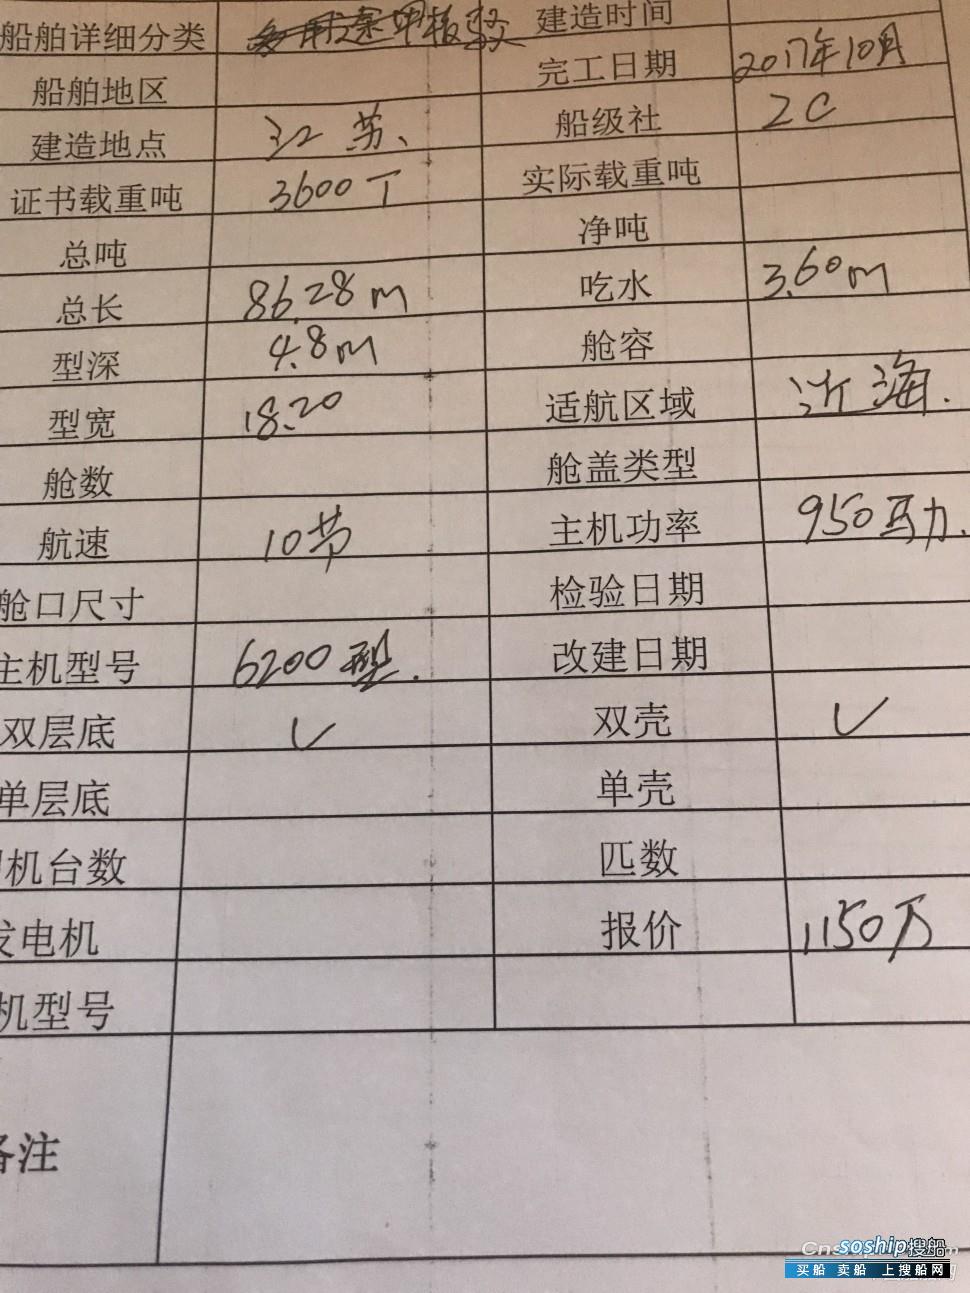 船舶详细分类 多用途甲板驳 建造时间
船舶地区 完工日期 2017年10月
建造地点 江苏、 船级社 ZC
证书载重吨 3600T 实际载重吨
总吨 净吨
总长 86.28m 吃水 3.60m
型深 4.8m 舱容
型宽 18.20 适航区域 近海.
舱数 舱盖类型
航速 10节 主机功率 950马力.
舱口尺寸 检验日期
主机型号 6200型. 改建日期
双层底 ✓ 双壳 ✓
单层底 单壳
机台数 匹数
发电机 报价 1150万
机型号
备注
soship搜船
买船 卖船 上搜船网